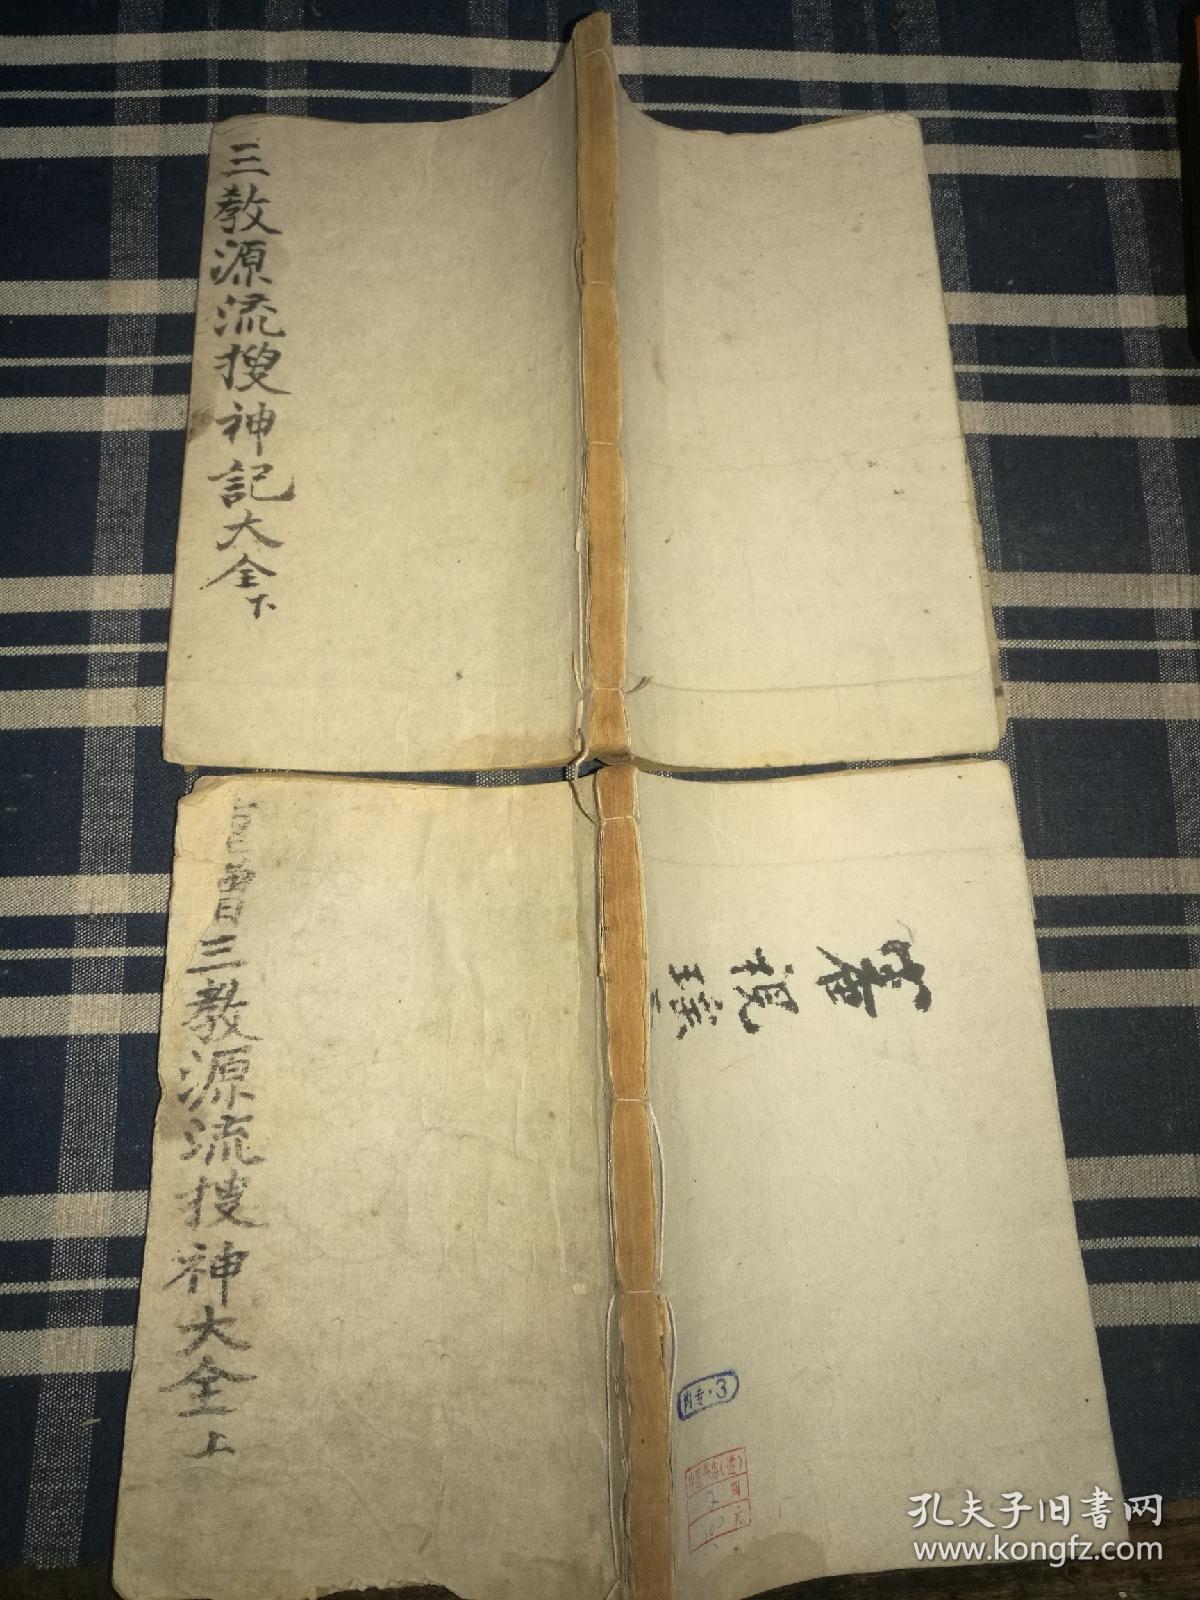 三教源流搜神記大全下
三教源流搜神大全上
2 册
100 元
孔夫子旧书网
www.kongfz.com